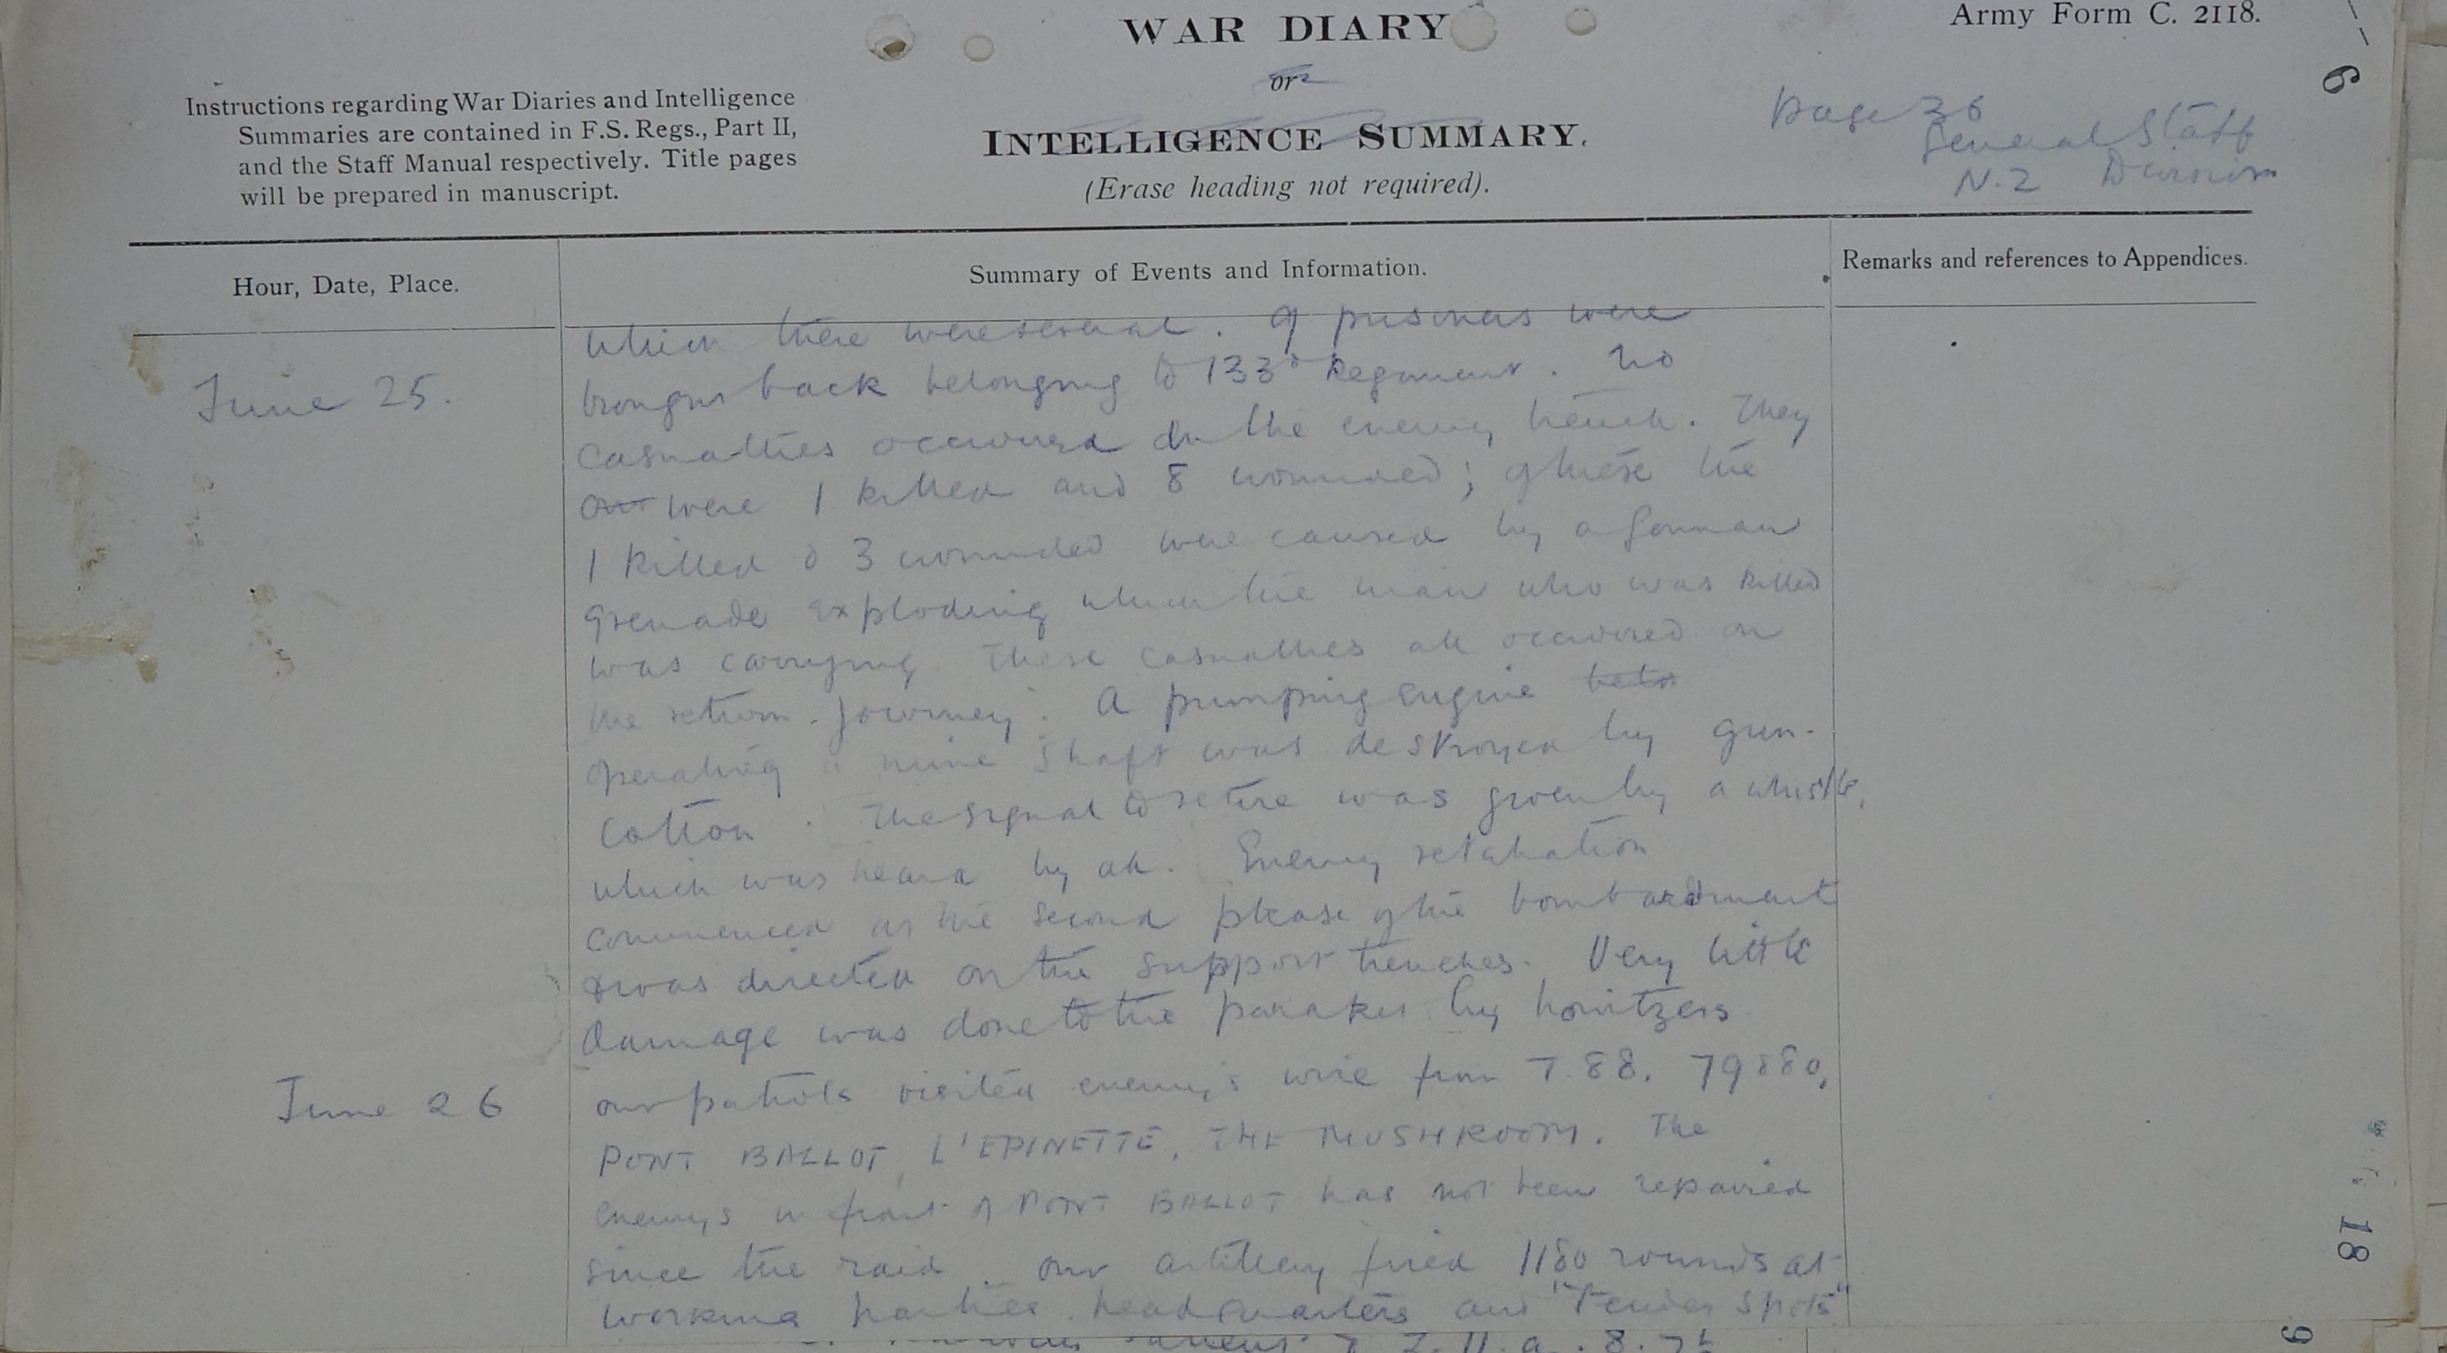 WAR DIARY
Army Form C. 2118.
or
INTELLIGENCE SUMMARY.
(Erase heading not required).
Instructions regarding War Diaries and Intelligence
Summaries are contained in F.S. Regs., Part II,
and the Staff Manual respectively. Title pages
will be prepared in manuscript.
Page 36
General Staff
N.Z Division
6
Hour, Date, Place.
Summary of Events and Information.
Remarks and references to Appendices.
which there were several. 9 prisoners were
June 25.
brought back belonging to 133d Regiment. No
casualties occurred in the enemy trench. They
were 1 killed and 8 wounded; of these the
1 killed & 3 wounded were caused by a German
grenade exploding when the man who was killed
was carrying. These casualties all occurred on
the return journey. A pumping engine
operating a mine shaft was destroyed by gun-
cotton. The signal to retire was given by a whistle,
which was heard by all. Enemy retaliation
commenced as the second phase of the bombardment
& was directed on the support trenches. Very little
damage was done to the parapet by howitzers
June 26
our patrols visited enemy's wire from T.88. 79880,
PONT BALLOT, L'EPINETTE, THE MUSHROOM. The
enemys in front of PONT BALLOT has not been repaired
since the raid. Our artillery fired 1180 rounds at
working parties, headquarters and "Tender spots"
18
9